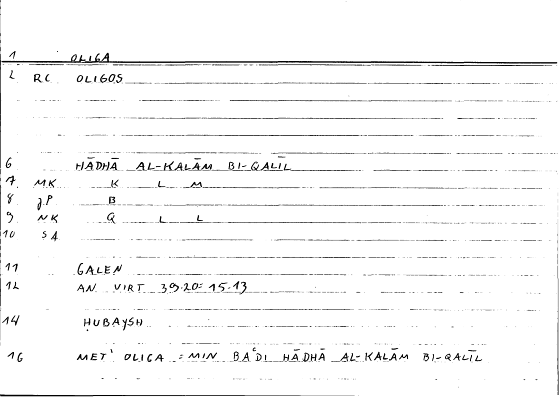 1 OLIGA
2 RC OLIGOS
6 HĀDHĀ AL-KALĀM BI-QALĪL
7 MK K L M
8 JP B
9 NK Q L L
10 SA
11 GALEN
12 AN VIRT 39.20 = 15.13
14 ḤUBAYSH
16 MET' OLIGA = MIN BAʿDI HĀDHĀ AL-KALĀM BI-QALĪL